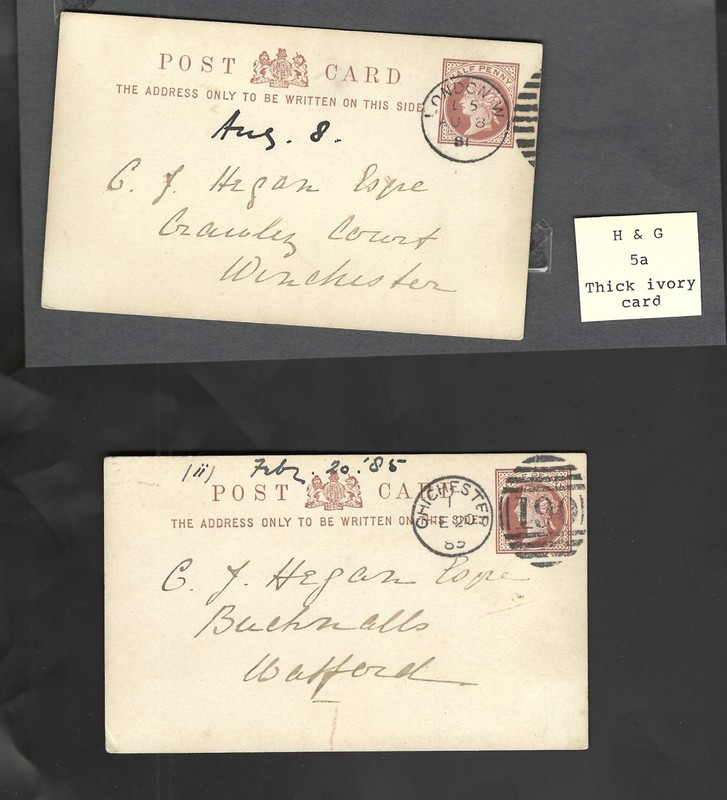 POST CARD
THE ADDRESS ONLY TO BE WRITTEN ON THIS SIDE
HALF PENNY
LONDON. W
AU 8
81
Aug. 8.
C. J. Hegan Esqre
Crawley Court
Winchester
H & G
5a
Thick ivory
card
(ii) Feby. 20. '85
POST CARD
THE ADDRESS ONLY TO BE WRITTEN ON THIS SIDE
CHICHESTER
FE 20
85
C. J. Hegan Esqre
Bucknalls
Watford